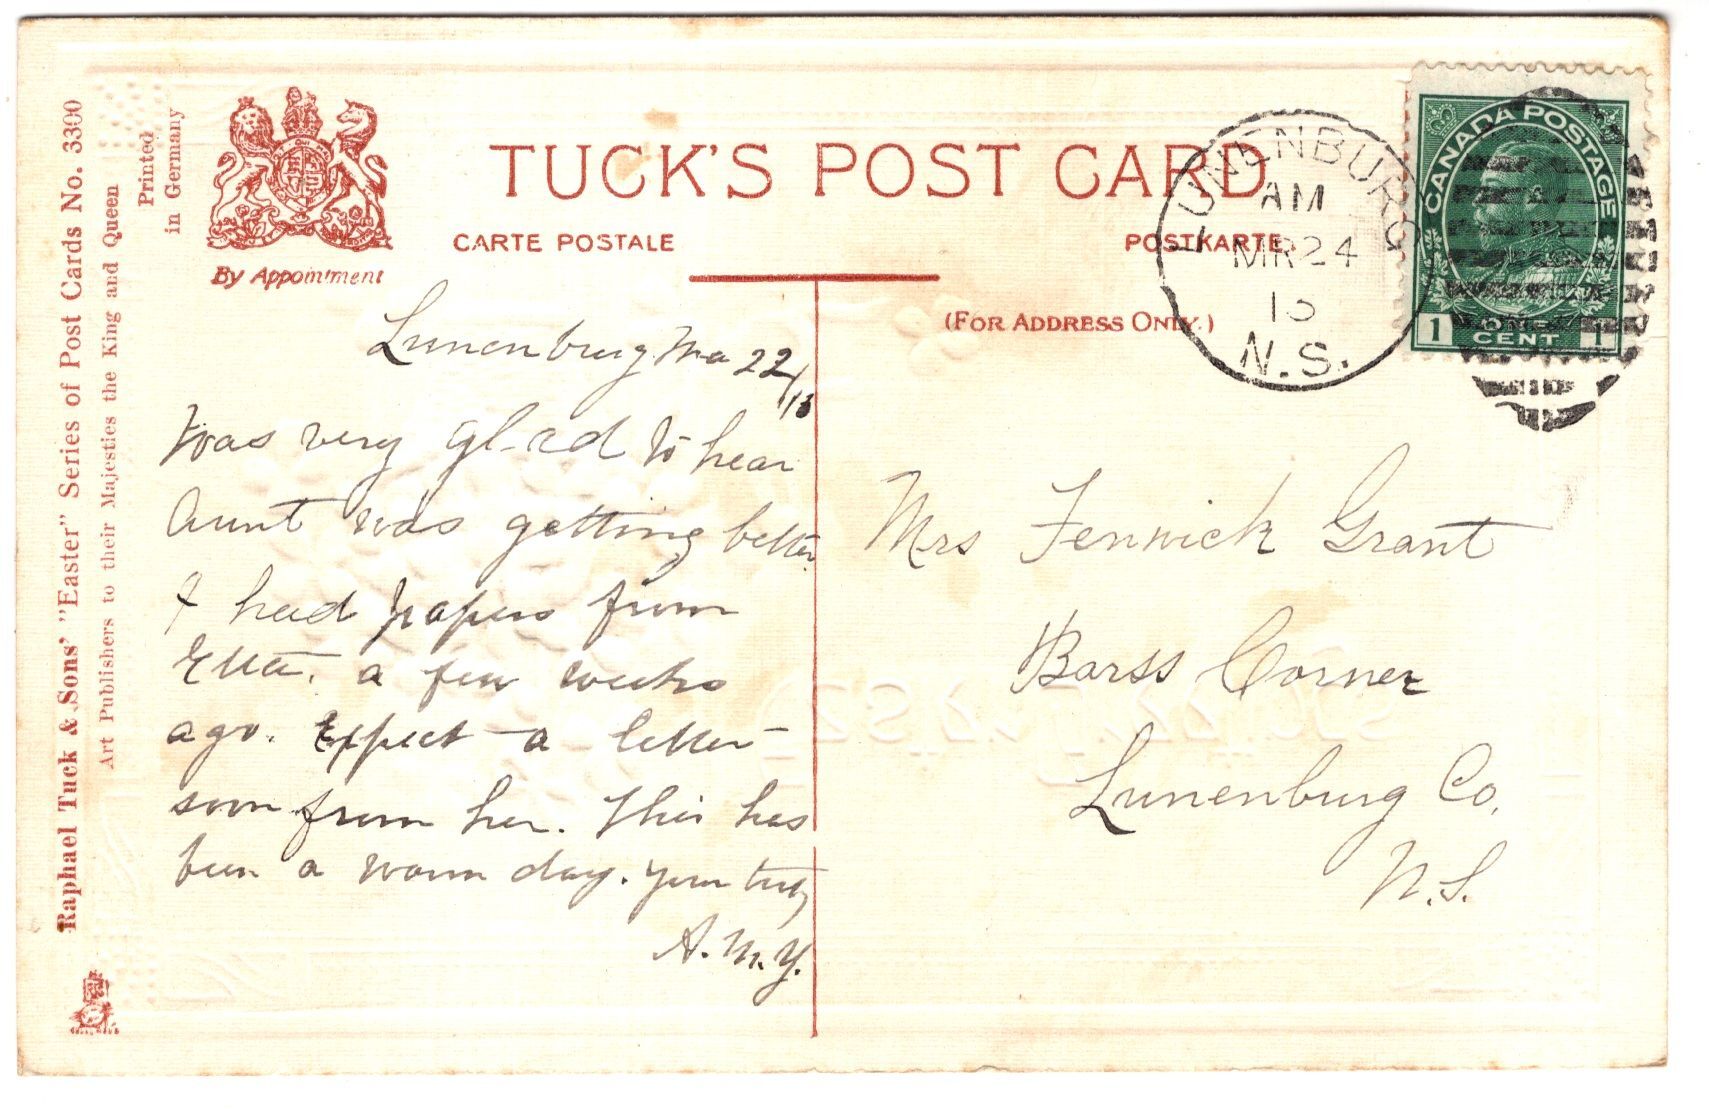 Raphael Tuck & Sons' "Easter" Series of Post Cards No. 3300
Art Publishers to their Majesties the King and Queen
Printed
in Germany
By Appointment
TUCK'S POST CARD
CARTE POSTALE
POSTKARTE
(FOR ADDRESS ONLY.)
LUNENBURG
AM
MR 24
13
N.S.
CANADA POSTAGE
1 ONE 1
CENT
Lunenburg Ma 22/13
Was very glad to hear
Aunt was getting better.
I had papers from
Etta. a few weeks
ago. Expect a letter
soon from her. This has
been a warm day. Yours truly
A.M.Y.
Mrs Fenwick Grant
Barss Corner
Lunenburg Co.
N.S.